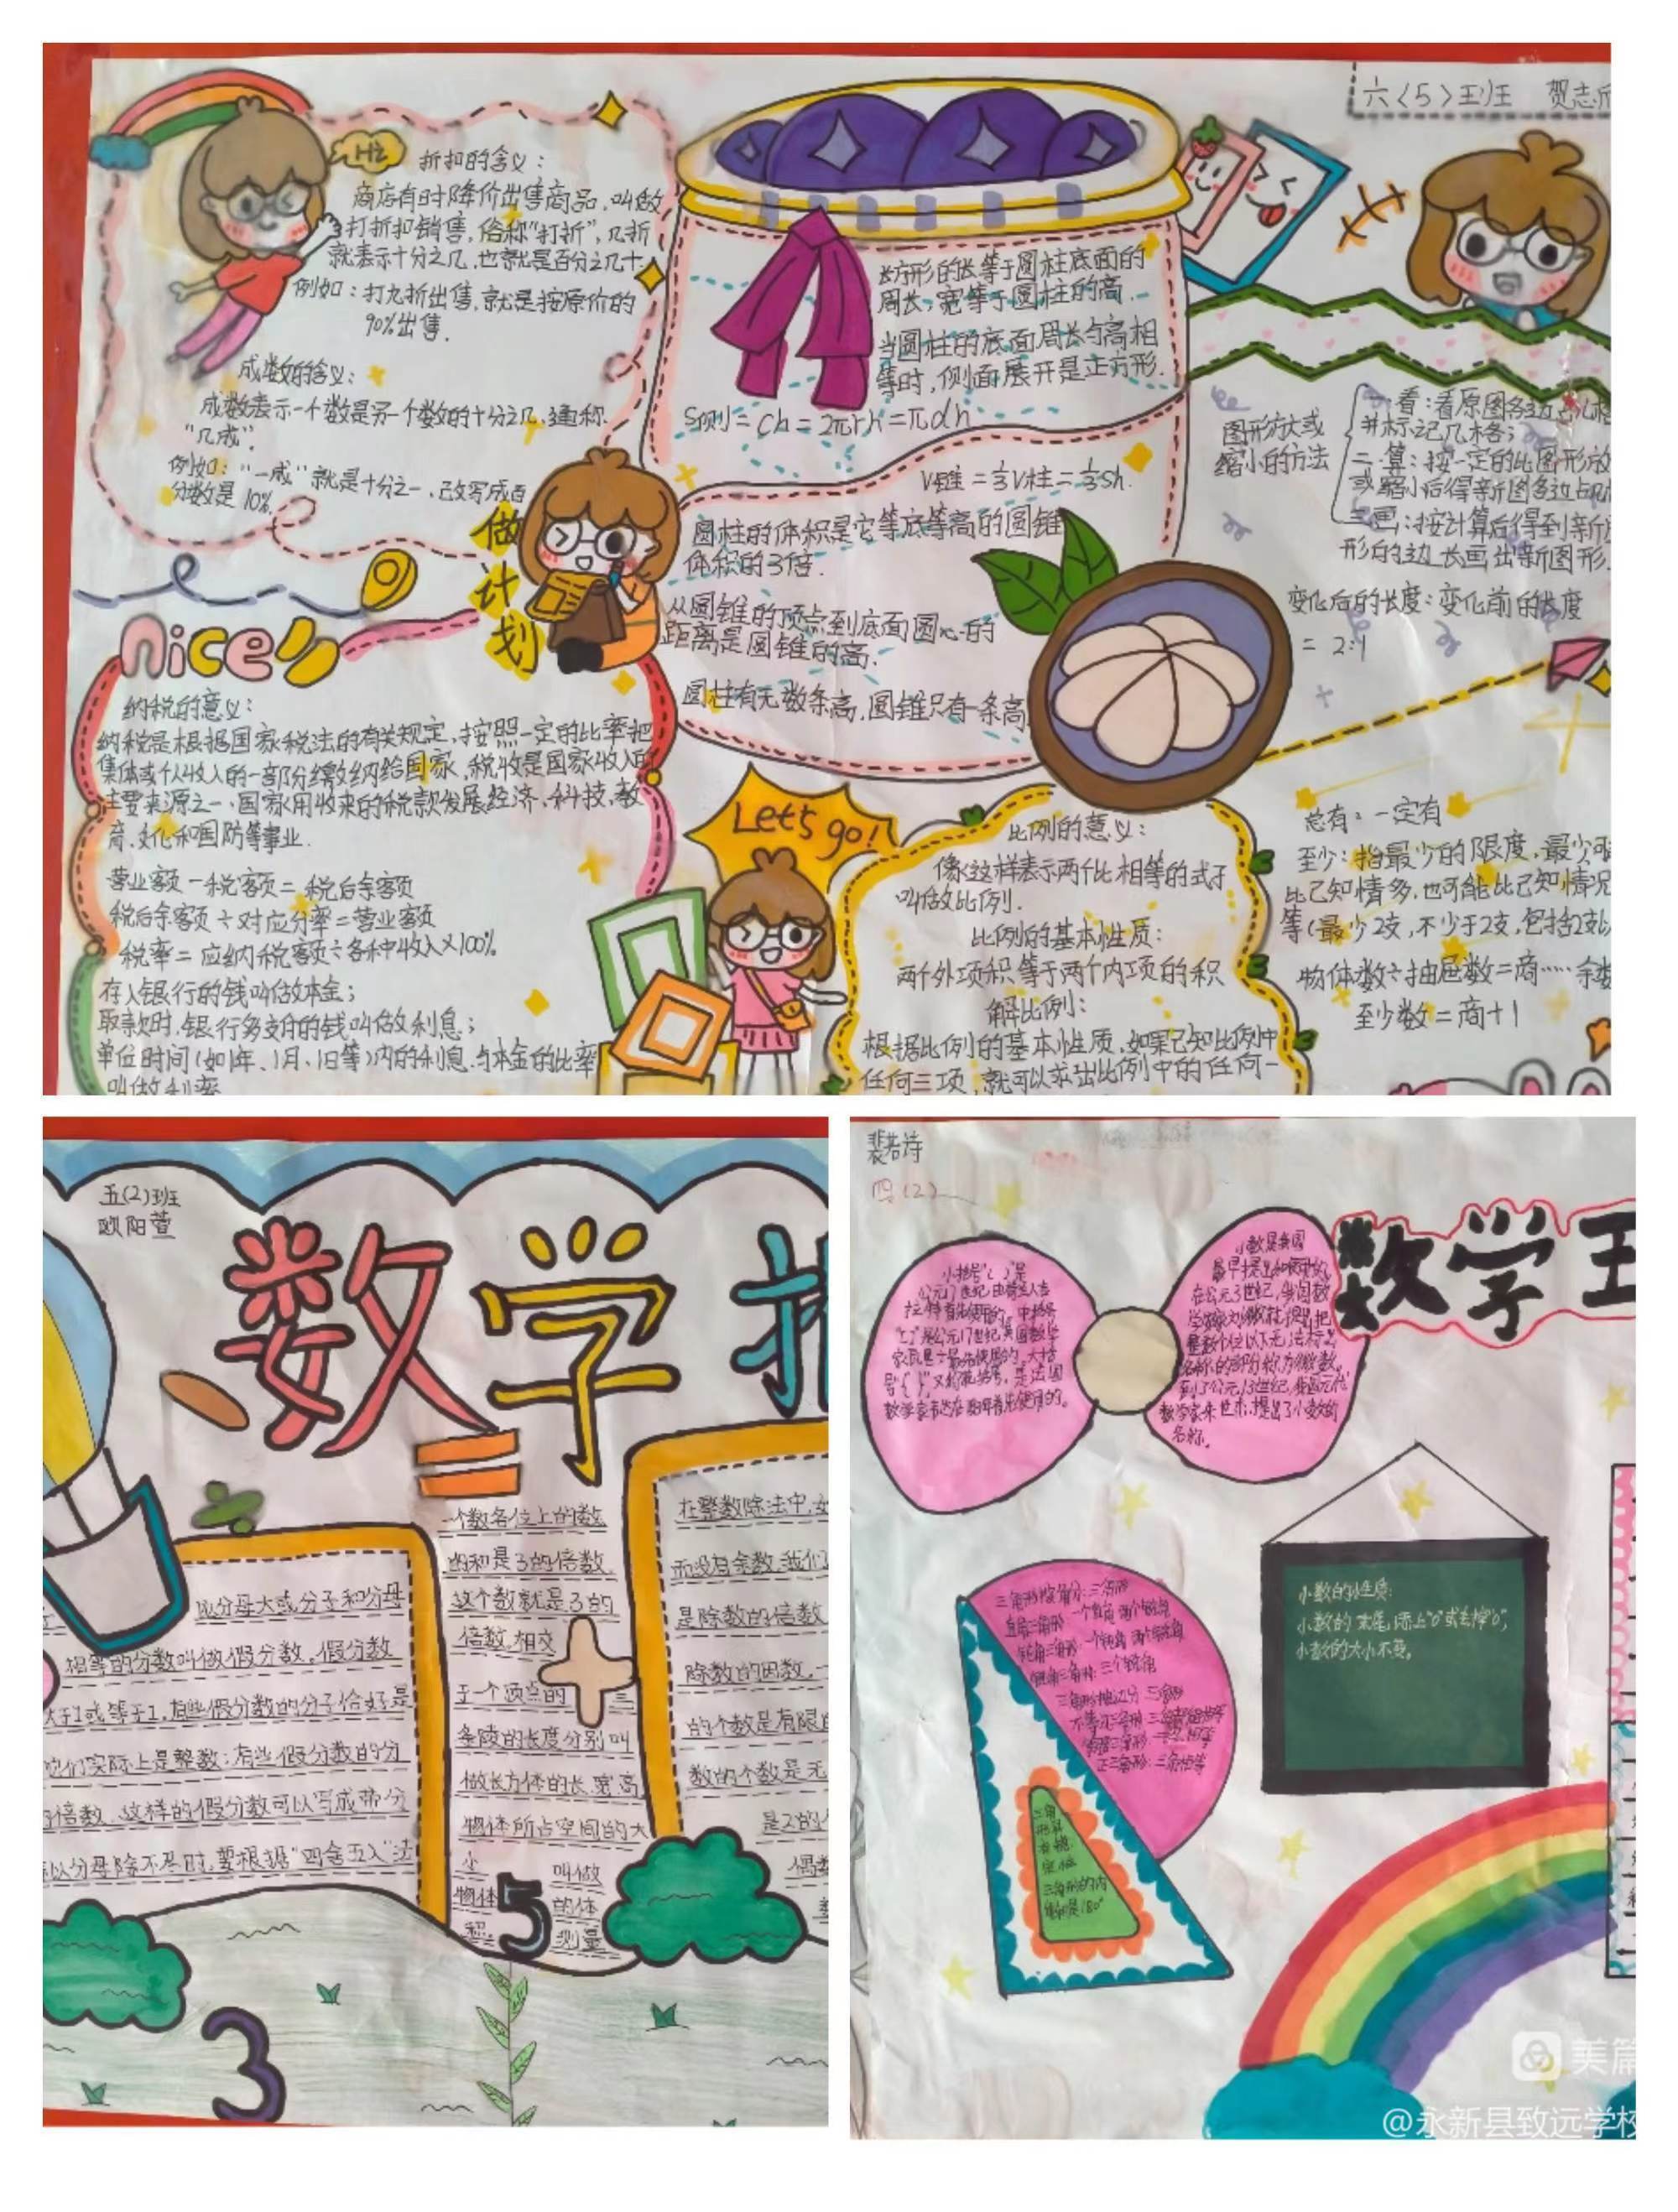 六(5)班 贺志
Hi
折扣的含义：
商店有时降价出售商品，叫做
打折扣销售，俗称“打折”，几折
就表示十分之几，也就是百分之几十
例如：打九折出售，就是按原价的
90%出售.
成数的含义：
成数表示一个数是另一个数的十分之几，通称
“几成”.
例如：“一成”就是十分之一，改写成百
分数是 10%
做计划
长方形的长等于圆柱底面的
周长，宽等于圆柱的高.
当圆柱的底面周长与高相
等时，侧面展开是正方形.
S侧=Ch=2πrh=πdh
V锥=⅓V柱=⅓Sh.
圆柱的体积是它等底等高的圆锥
体积的3倍.
从圆锥的顶点到底面圆心的
距离是圆锥的高.
圆柱有无数条高，圆锥只有一条高
图形放大或
缩小的方法
一看：看原图各边占几格
并标记几格；
二算：按一定的比图形放
或缩小后得新图各边占几
三画：按计算后得到新
形的边长画出新图形.
变化后的长度：变化前的长度
= 2:1
nice
纳税的意义：
纳税是根据国家税法的有关规定，按照一定的比率把
集体或个人收入的一部分缴纳给国家，税收是国家收入的
主要来源之一，国家用收来的税款发展经济、科技、教
育、文化和国防等事业.
营业额－税客页＝税后余客页
税后余客页÷对应分率＝营业客页
税率＝应纳税客页÷各种收入×100%
存入银行的钱叫做本金；
取款时，银行多支付的钱叫做利息；
单位时间(如1年、1月、1日等)内的利息与本金的比率
叫做利率
Let's go!
比例的意义：
像这样表示两个比相等的式子
叫做比例.
比例的基本性质：
两个外项积等于两个内项的积
解比例：
根据比例的基本性质，如果已知比例中
任何三项，就可以求出比例中的任何一
总有：一定有
至少：指最少的限度，最少可
比已知情多，也可能比已知情况
等(最少2支，不少于2支，包括2支以
物体数÷抽屉数＝商……余数
至少数＝商+1
五(2)班
欧阳萱
数学
比分母大或分子和分母
相等的分数叫做假分数，假分数
大于1或等于1，有些假分数的分子恰好是
他们实际上是整数；有些假分数的分
倍数，这样的假分数可以写成带分
以分母除不尽时，要根据“四舍五入”法
一个数各位上的数
的和是3的倍数
这个数就是3的
倍数，相交
于一个顶点的三
条棱的长度分别叫
做长方体的长、宽、高
物体所占空间的大
小 叫做
物体 的体
积 测量
5
3
在整数除法中，
而没有余数，我们
是除数的倍数
除数的因数，一
的个数是有限
数的个数是无
是2的
偶数
裴若诗
四(2)
数学王
小括号“( )”是
公元17世纪由荷兰人吉
拉特首先使用的，中括号
“[ ]”是公元17世纪英国数学
家瓦里士最先使用的，大括
号“{ }”又称花括号，是法国
数学家韦达在1593年首先使用的。
小数是我国
最早提出和使用的，
在公元3世纪，我国数
学家刘徽就提出把
整数个位以下无法标出
名称的部分称为微数。
到了公元13世纪，我国元代
数学家朱世杰提出了小数的
名称。
小数的性质：
小数的末尾，添上“0”或去掉“0”，
小数的大小不变。
三角形按角分：三角形
直角三角形：一个直角，两个锐角
钝角三角形：一个钝角，两个锐角
锐角三角形：三个锐角
三角形按边分：三角形
正三角形：三条边相等
三角
形具
有稳
定性
三角形的内
角和是180°
美篇
@永新县致远学校